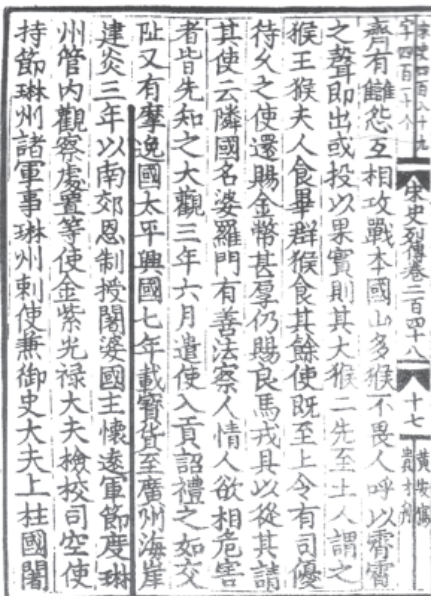 宋史列傳卷二百四十八
十七
齊有讎怨互相攻戰本國山多猴不畏人呼以霄霄
之聲即出或投以果實則其大猴二先至土人謂之
猴王猴夫人食畢群猴食其餘使既至上令有司優
待久之使還賜金幣甚厚仍賜良馬戎具以從其請
其使云隣國名婆羅門有善法察人情人欲相危害
者皆先知之大觀三年六月遣使入貢詔禮之如交
阯又有摩逸國太平興國七年載寶貨至廣州海岸
建炎三年以南郊恩制授闍婆國主懷遠軍節度琳
州管内觀察處置等使金紫光禄大夫檢校司空使
持節琳州諸軍事琳州刺使兼御史大夫上柱國闍